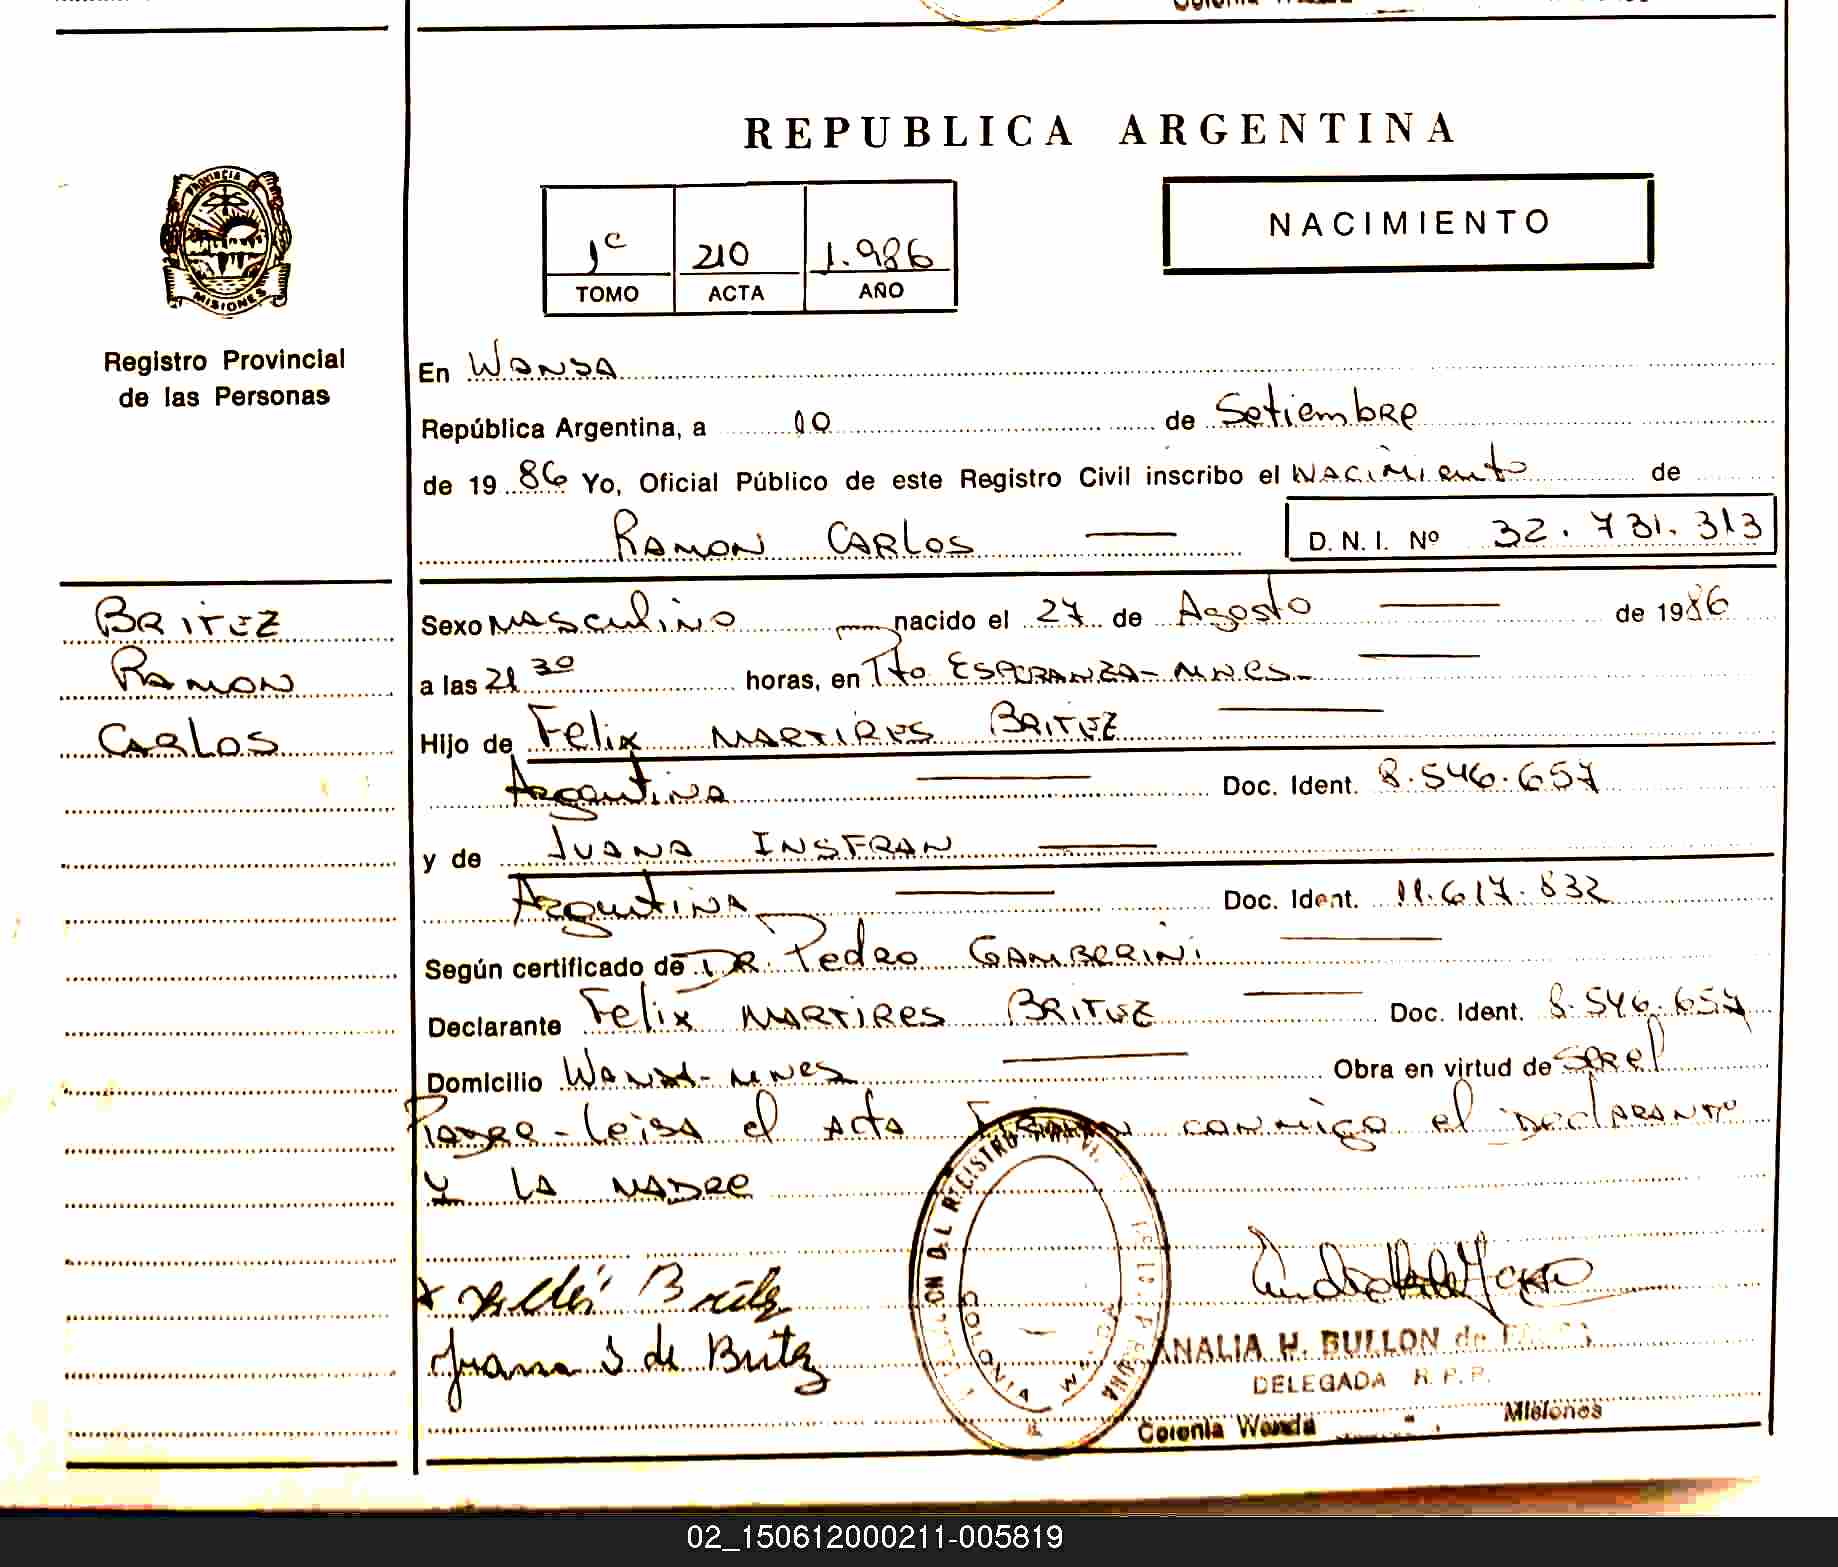 REPUBLICA ARGENTINA
PROVINCIA
MISIONES
Registro Provincial
de las Personas
1º 210 1.986
TOMO ACTA AÑO
NACIMIENTO
En Wanda
República Argentina, a 10 de Setiembre
de 1986 Yo, Oficial Público de este Registro Civil inscribo el Nacimiento de
Ramon Carlos D.N.I. Nº 32.731.313
BRITEZ
Ramon
Carlos
Sexo Masculino nacido el 27 de Agosto de 1986
a las 21 30 horas, en Pto Esperanza - Mnes.
Hijo de Felix Martires Britez
Argentina Doc. Ident. 8.546.657
y de Juana Insfran
Argentina Doc. Ident. 11.617.832
Según certificado de DR. Pedro Gamberini
Declarante Felix Martires Britez Doc. Ident. 8.546.657
Domicilio Wanda - Mnes Obra en virtud de ser el
Padre - Leida el acta Firman conmigo el Declarante
y la Madre
Britez
Juana I de Britez
COLONIA WANDA
ANALIA H. BULLON de
DELEGADA R. P. P.
Colonia Wanda Misiones
02_150612000211-005819